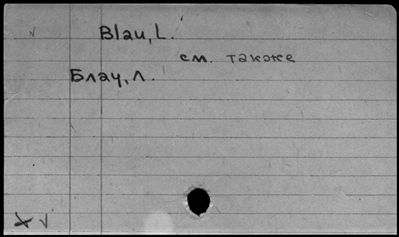 Blau, L.
см. также
Блау, Л.